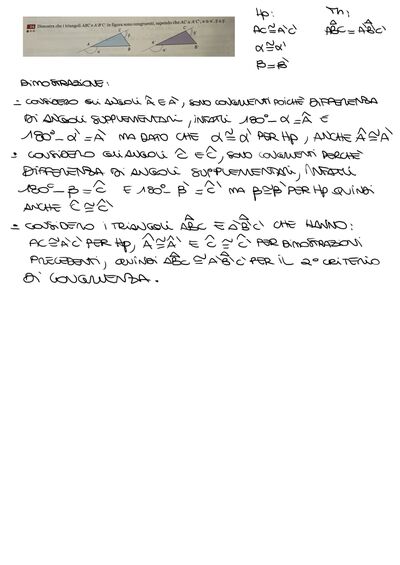 Dimostra che i triangoli ABC e A'B'C' in figura sono congruenti, sapendo che AC ≅ A'C', α ≅ α'
Hp: Th:
AC≅A'C' ABC≅A'B'C'
α≅α'
β≅β'
DIMOSTRAZIONE:
- CONSIDERO GLI ANGOLI Â E Â', SONO CONGRUENTI POICHÈ DIFFERENZA
DI ANGOLI SUPPLEMENTARI, INFATTI 180°-α=Â E
180°-α'=A' MA DATO CHE α≅α' PER Hp, ANCHE Â≅A'
- CONSIDERO GLI ANGOLI Ĉ E Ĉ', SONO CONGRUENTI PERCHÈ
DIFFERENZA DI ANGOLI SUPPLEMENTARI, INFATTI
180°-β=Ĉ E 180°-β'=Ĉ' MA β≅β' PER HP QUINDI
ANCHE Ĉ≅Ĉ'
- CONSIDERO I TRIANGOLI ABC E A'B'C' CHE HANNO:
AC≅A'C' PER Hp, Â≅Â' E Ĉ≅Ĉ' PER DIMOSTRAZIONI
PRECEDENTI, QUINDI ABC≅A'B'C' PER IL 2° CRITERIO
DI CONGRUENZA.